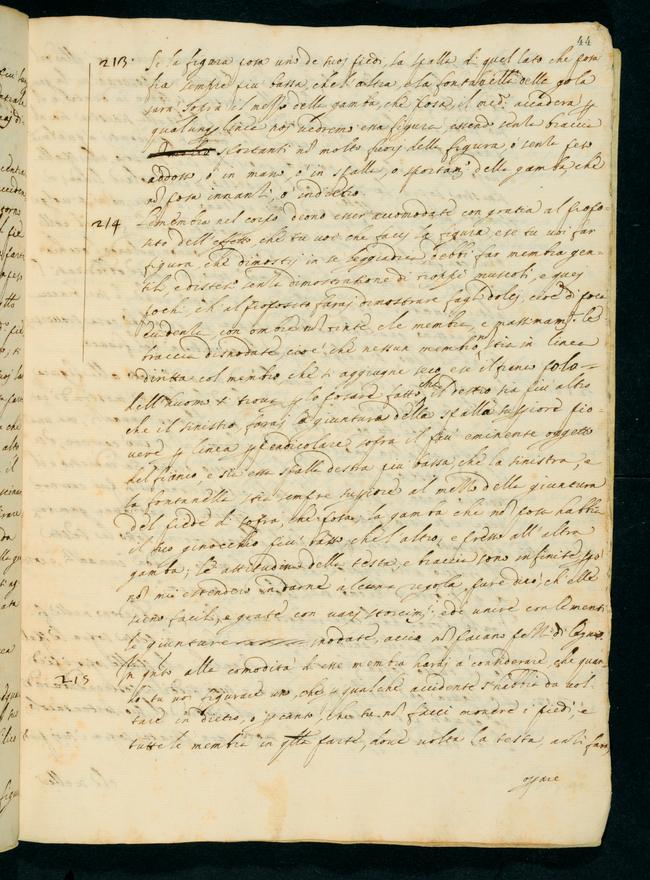 44
213 Se la figura posa uno de suoi piedi, la spalla di quel lato che posa
sia sempre più bassa, che l'altra, e la fontanella della gola
sarà sopra il mezzo della gamba, che posa, il med.º accaderà p
qualunq linea noi vedremo essa figura essendo senza braccia
sportanti nõ molto fuori della figura, ò senza peso
addosso, ò in mano, ò in spalla, o sportam.º della gamba, che
nõ posa innanzi, ò indietro.
214 Le membra nel corpo deono esser accomodate con gratia al propo-
sito dell'effetto, che tu voi che facci la figura, e se tu voi far
figura, che dimostri in se leggiadria debbi far membra gen-
tili, e distese senza dimostratione di troppi muscoli, e quei
pochi, ch'al proposito farai dimostrare fagli dolci, cioè di poca
evidenza, con ombre nõ tinte, e le membra, e massimam.te le
braccia disnodate, cioè, che nessun membro stia in linea
diritta col membro che s'aggiugne seco, e se il fianco polo
dell'huomo si trova p lo posare fatto che il destro sia più alto
che il sinistro, farai la giuntura della spalla superiore pio-
vere p linea ppendicolare sopra il più eminente oggetto
del fianco, e sia essa spalla destra più bassa, che la sinistra, e
la fontanella stia sempre superiore al mezzo della giuntura
del piede di sopra, che posa, la gamba che nõ posa habbia
il suo ginocchio più basso che l'altro, e presso all'altra
gamba; le attitudini della testa, e braccia sono infinite però
nõ mi estendero in darne alcuna regola, pure dirò, ch'elle
sieno facili, e grate con varij storcim.ti ed unire con le menti
le giunture snodate, acciò nõ paiano pezzi di legno.
215 In q.nto alla comodità di esse membra harai à considerare, che quan-
do tu voi figurare uno, che p qualche accidente s'habbia da vol-
tare in dietro, o p canto, che tu nõ facci movere i piedi, e
tutte le membra in q.lla parte, dove volta la testa, anzi farai
opare